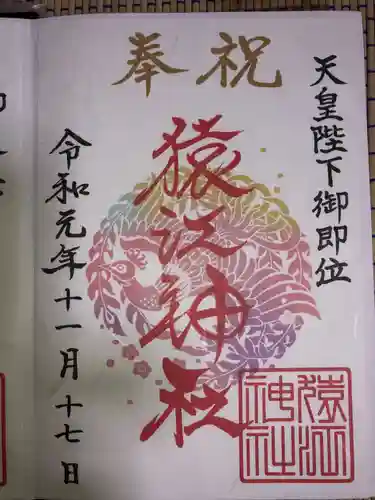 天皇陛下御即位
奉祝
猿江神社
令和元年十一月十七日
猿江
神社